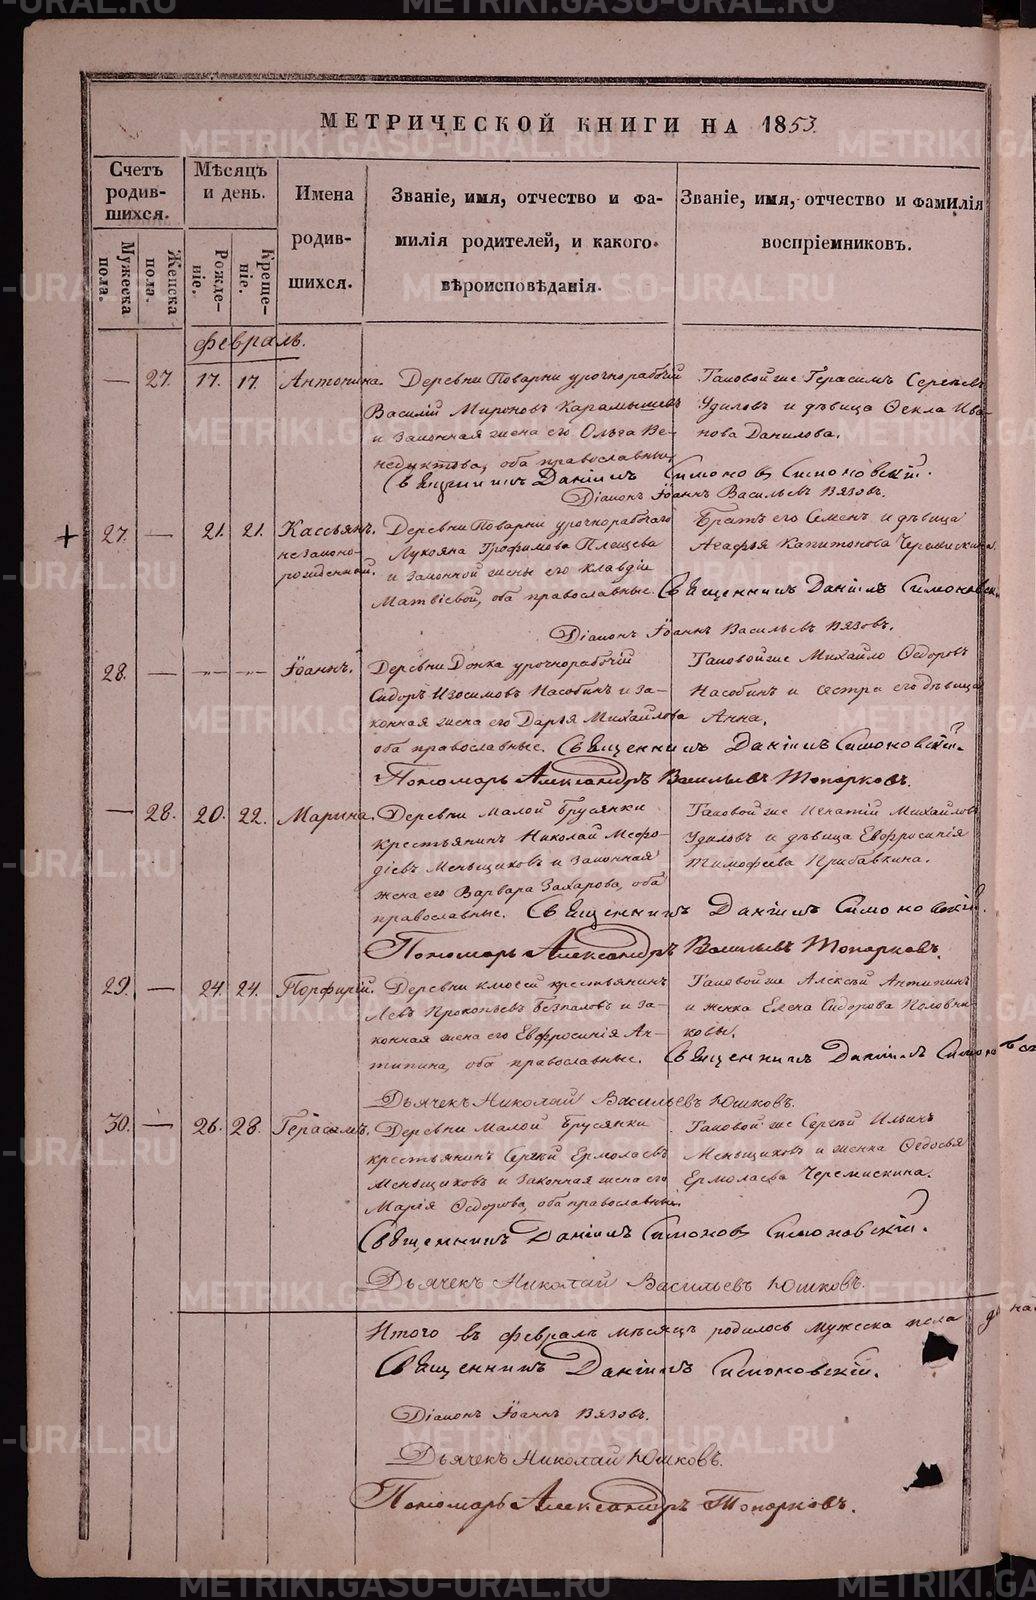 МЕТРИЧЕСКОЙ КНИГИ НА 1853.
Счетъ родившихся.
Мѣсяцъ и день.
Имена родившихся.
Званіе, имя, отчество и фамилія родителей, и какого вѣроисповѣданія.
Званіе, имя, отчество и фамилія воспріемниковъ.
Мужеска пола.
Женска пола.
Рожденіе.
Крещеніе.
Февраль.
— 27. 17. 17. Антонина.
Деревни Поварни урочнорабочій
Василій Мироновъ Карамышевъ
и законная жена его Ольга Ве-
недиктова, оба православные
Таковой же Герасимъ Сергѣевъ
Удиловъ и дѣвица Ѳекла Ива-
нова Данилова.
Священникъ Даніилъ Симоновъ Симоновскій.
Діаконъ Іоаннъ Васильевъ Вязовъ.
27. — 21. 21. Кассьянъ.
незаконно-
рожденный.
Деревни Поварни урочнорабочаго
Лукояна Трофимова Плещева
и законной жены его Клавдіи
Матвіевой, оба православные.
Братъ его Семенъ и дѣвица
Агафья Капитонова Черемискина.
Священникъ Даніилъ Симоновск
Діаконъ Іоаннъ Васильевъ Вязовъ.
28. — Іоаннъ.
Деревни Донка урочнорабочій
Сидоръ Изосимовъ Насобинъ и за-
конная жена его Дарія Михайлова
оба православные.
Таковой же Михайло Ѳедоровъ
Насобинъ и сестра его дѣвица
Анна.
Священникъ Даніилъ Симоновскій.
Пономарь Александръ Васильевъ Топорковъ.
— 28. 20. 22. Марина.
Деревни Малой Брусянки
крестьянинъ Николай Мефо-
діевъ Меньщиковъ и законная
жена его Варвара Захарова, оба
православные.
Таковой же Игнатій Михайловъ
Удиловъ и дѣвица Евфросинія
Тимофеева Прибавкина.
Священникъ Даніилъ Симоновскій.
Пономарь Александръ Васильевъ Топорковъ.
29. — 24. 24. Порфирій.
Деревни крестьянинъ
Левъ Прокопьевъ Безпаловъ и за-
конная жена его Евфросинія Ан-
типина, оба православные.
Таковой же Алексѣй Антипинъ
и женка Елена Сидорова Половни-
ковы.
Священникъ Даніилъ Симоновъ
Дьячекъ Николай Васильевъ Юшковъ.
30. — 26. 28. Герасимъ.
Деревни Малой Брусянки
крестьянинъ Сергѣй Ермолаевъ
Меньщиковъ и законная жена его
Марія Ѳедорова, оба православные.
Таковой же Сергѣй Ильинъ
Меньщиковъ и женка Ѳедосья
Ермолаева Черемискина.
Священникъ Даніилъ Симоновъ Симоновскій.
Дьячекъ Николай Васильевъ Юшковъ.
Итого въ февралѣ мѣсяцѣ родилось мужеска пола
Священникъ Даніилъ Симоновскій.
Діаконъ Іоаннъ Вязовъ.
Дьячекъ Николай Юшковъ.
Пономарь Александръ Топорковъ.
METRIKI.GASO-URAL.RU